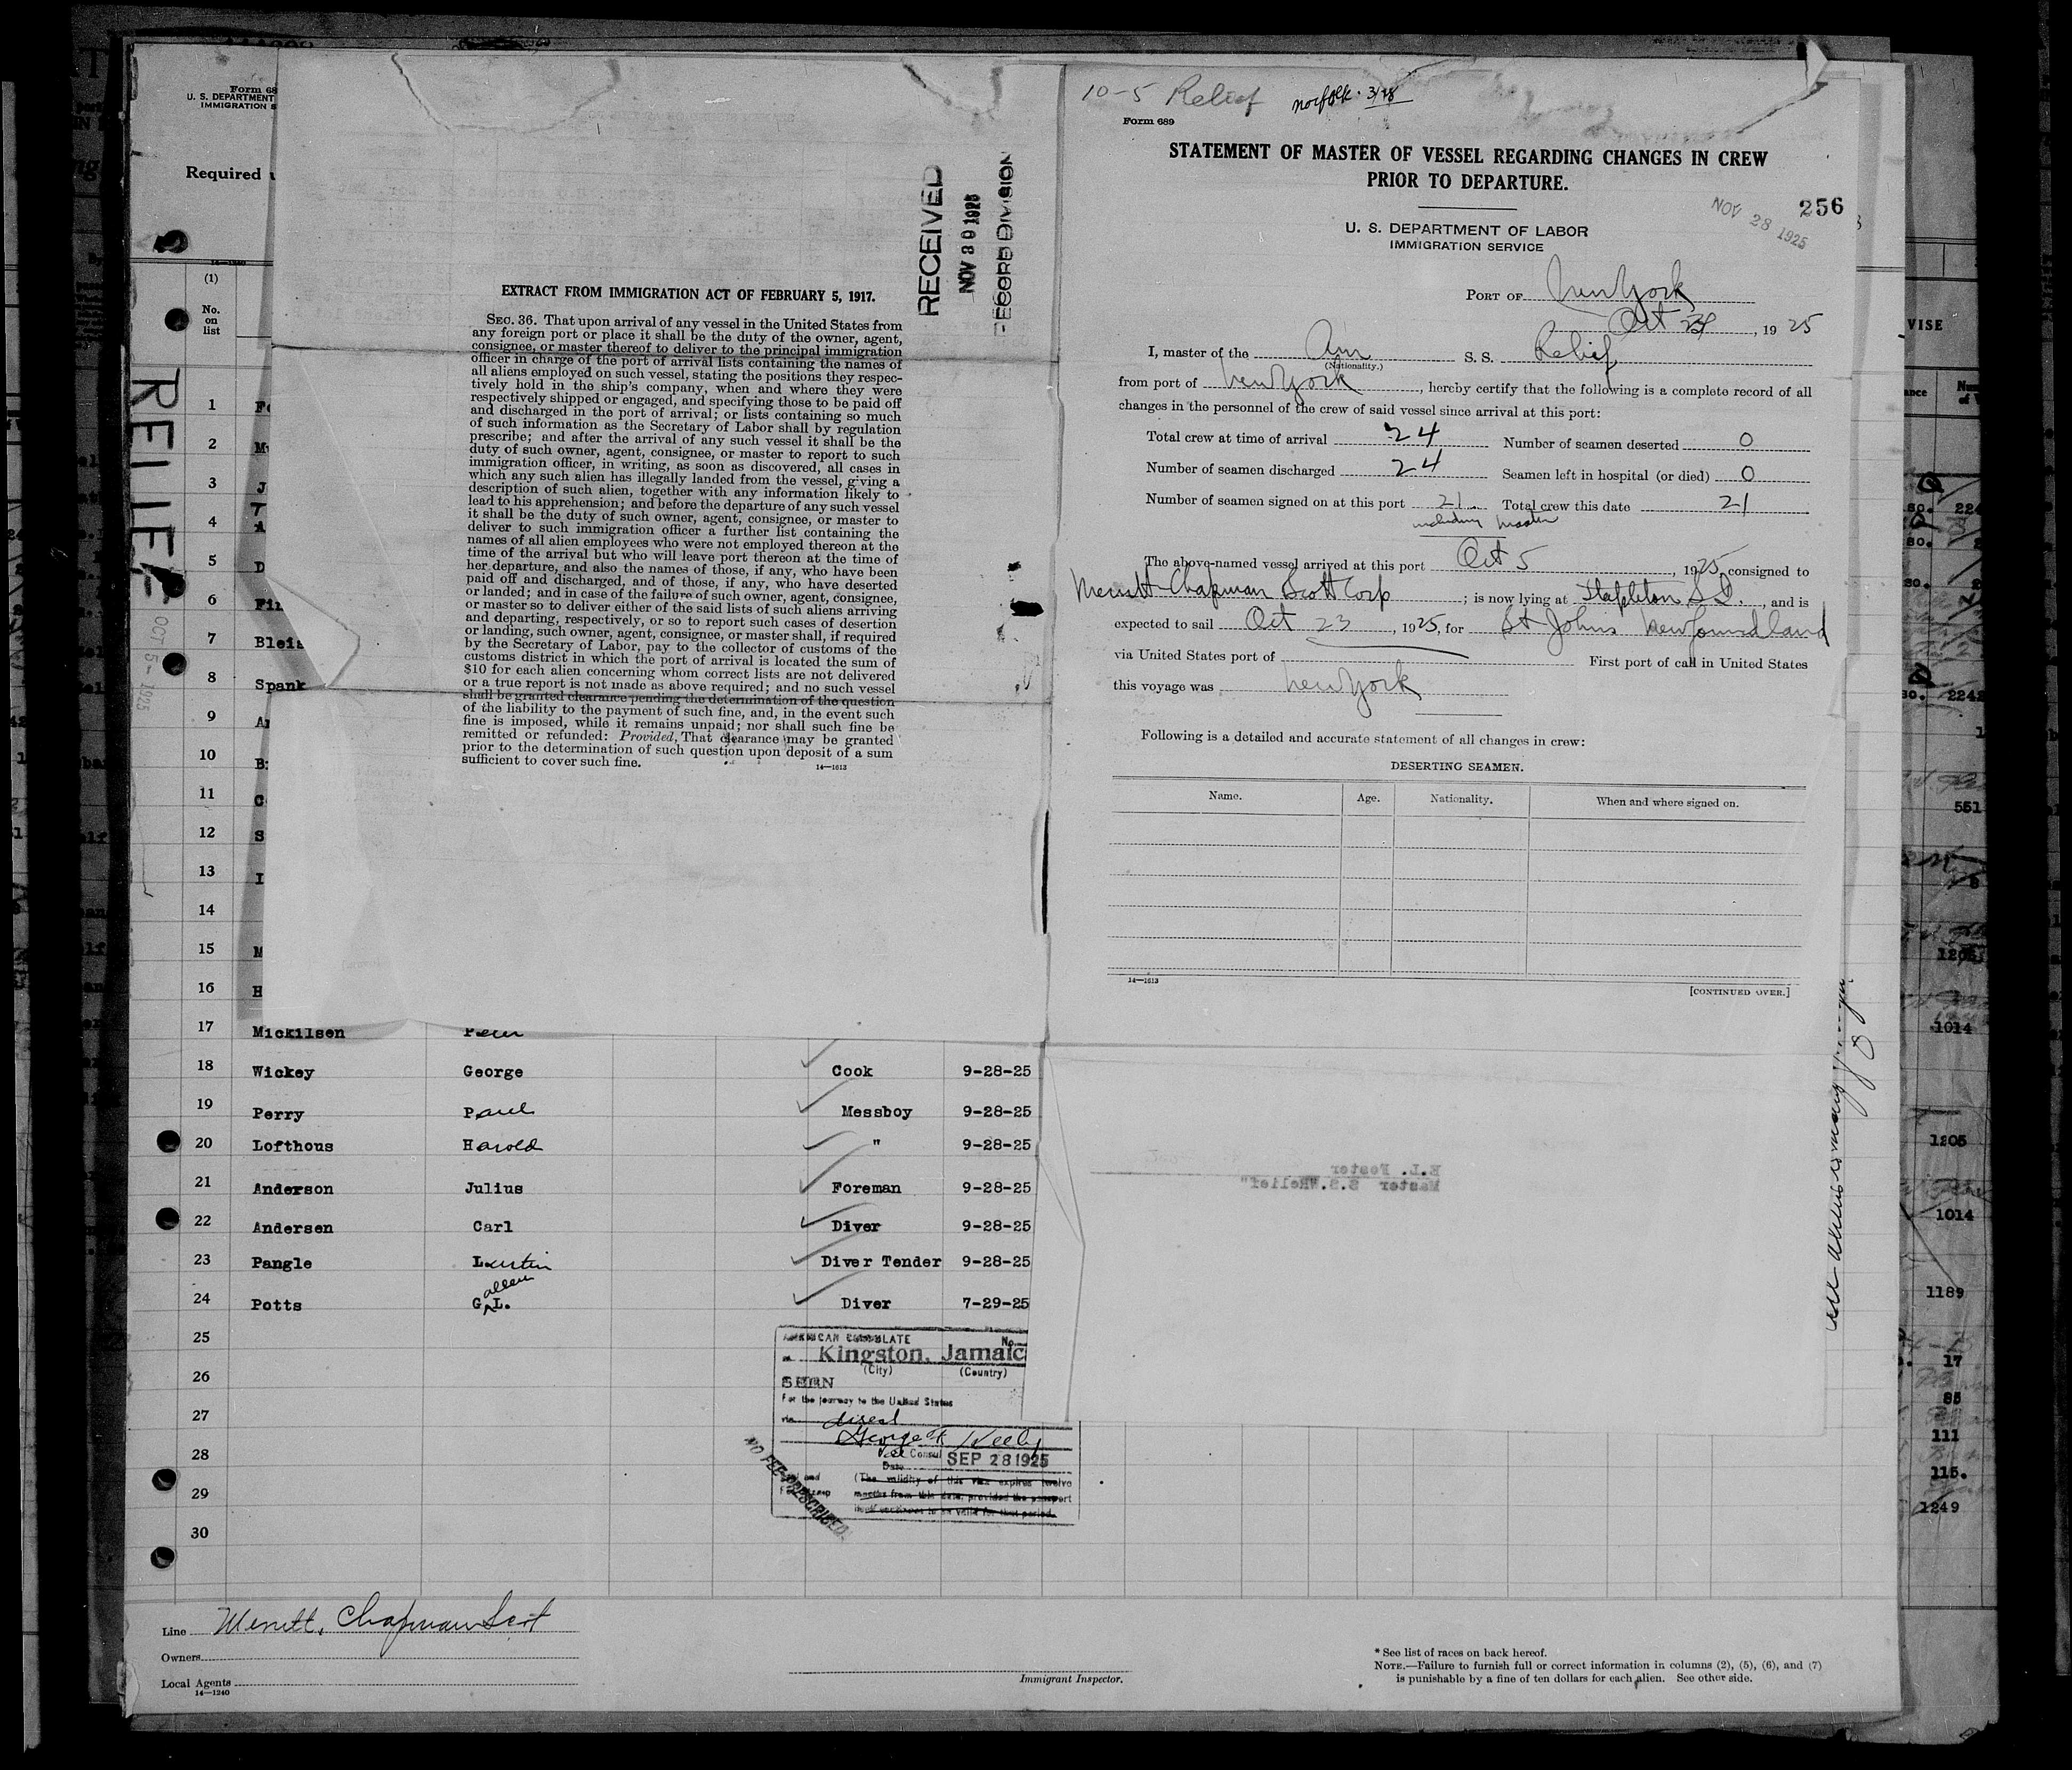 Form 68
U. S. DEPARTMENT
IMMIGRATION S
Required
(1)
No.
on
list
RELIEF
OCT 5- 1925
1
2
3 J
4
5 D
6
7 Bleis
8 Spank
9
10
11
12 S
13 I
14
15 M
16 H
17 Mickilsen Peter
18 Wickey George Cook 9-28-25
19 Perry Paul Messboy 9-28-25
20 Lofthous Harold " 9-28-25
21 Anderson Julius Foreman 9-28-25
22 Andersen Carl Diver 9-28-25
23 Pangle Lustin Diver Tender 9-28-25
24 Potts G. allen L. Diver 7-29-25
25
26
27
28
29
30
AMERICAN CONSULATE
No.
Kingston, Jamaic
(City) (Country)
SEEN
For the journey to the United States
via direct
Vice Consul
Date SEP 28 1925
(The validity of this visa expires twelve
months from this date, provided the passport
NO FEE PRESCRIBED
Line Merritt, Chapman Scot
Owners
Local Agents
14—1240
Immigrant Inspector.
* See list of races on back hereof.
NOTE.—Failure to furnish full or correct information in columns (2), (5), (6), and (7)
is punishable by a fine of ten dollars for each alien. See other side.
RECEIVED
NOV 30 1925
RECORD DIVISION
EXTRACT FROM IMMIGRATION ACT OF FEBRUARY 5, 1917.
SEC. 36. That upon arrival of any vessel in the United States from
any foreign port or place it shall be the duty of the owner, agent,
consignee, or master thereof to deliver to the principal immigration
officer in charge of the port of arrival lists containing the names of
all aliens employed on such vessel, stating the positions they respec-
tively hold in the ship's company, when and where they were
respectively shipped or engaged, and specifying those to be paid off
and discharged in the port of arrival; or lists containing so much
of such information as the Secretary of Labor shall by regulation
prescribe; and after the arrival of any such vessel it shall be the
duty of such owner, agent, consignee, or master to report to such
immigration officer, in writing, as soon as discovered, all cases in
which any such alien has illegally landed from the vessel, giving a
description of such alien, together with any information likely to
lead to his apprehension; and before the departure of any such vessel
it shall be the duty of such owner, agent, consignee, or master to
deliver to such immigration officer a further list containing the
names of all alien employees who were not employed thereon at the
time of the arrival but who will leave port thereon at the time of
her departure, and also the names of those, if any, who have been
paid off and discharged, and of those, if any, who have deserted
or landed; and in case of the failure of such owner, agent, consignee,
or master so to deliver either of the said lists of such aliens arriving
and departing, respectively, or so to report such cases of desertion
or landing, such owner, agent, consignee, or master shall, if required
by the Secretary of Labor, pay to the collector of customs of the
customs district in which the port of arrival is located the sum of
$10 for each alien concerning whom correct lists are not delivered
or a true report is not made as above required; and no such vessel
shall be granted clearance pending the determination of the question
of the liability to the payment of such fine, and, in the event such
fine is imposed, while it remains unpaid; nor shall such fine be
remitted or refunded: Provided, That clearance may be granted
prior to the determination of such question upon deposit of a sum
sufficient to cover such fine.
14—1613
10-5 Relief norfolk
Form 689
STATEMENT OF MASTER OF VESSEL REGARDING CHANGES IN CREW
PRIOR TO DEPARTURE.
256
NOV 28 1925
U. S. DEPARTMENT OF LABOR
IMMIGRATION SERVICE
PORT OF New York
Oct , 1925
I, master of the Am S. S. Relief
(Nationality.)
from port of New York, hereby certify that the following is a complete record of all
changes in the personnel of the crew of said vessel since arrival at this port:
Total crew at time of arrival 24 Number of seamen deserted 0
Number of seamen discharged 24 Seamen left in hospital (or died) 0
Number of seamen signed on at this port 21 Total crew this date 21
including master
The above-named vessel arrived at this port Oct 5, 1925, consigned to
Merritt-Chapman Scott Corp; is now lying at Stapleton S.I., and is
expected to sail Oct 23, 1925, for St Johns Newfoundland
via United States port of First port of call in United States
this voyage was New York
Following is a detailed and accurate statement of all changes in crew:
DESERTING SEAMEN.
Name. Age. Nationality. When and where signed on.
14—1613
[CONTINUED OVER.]
E.L. Foster
Master S.S."Relief"
VISE
551
1014
1205
1014
1189
17
85
111
115.
1249